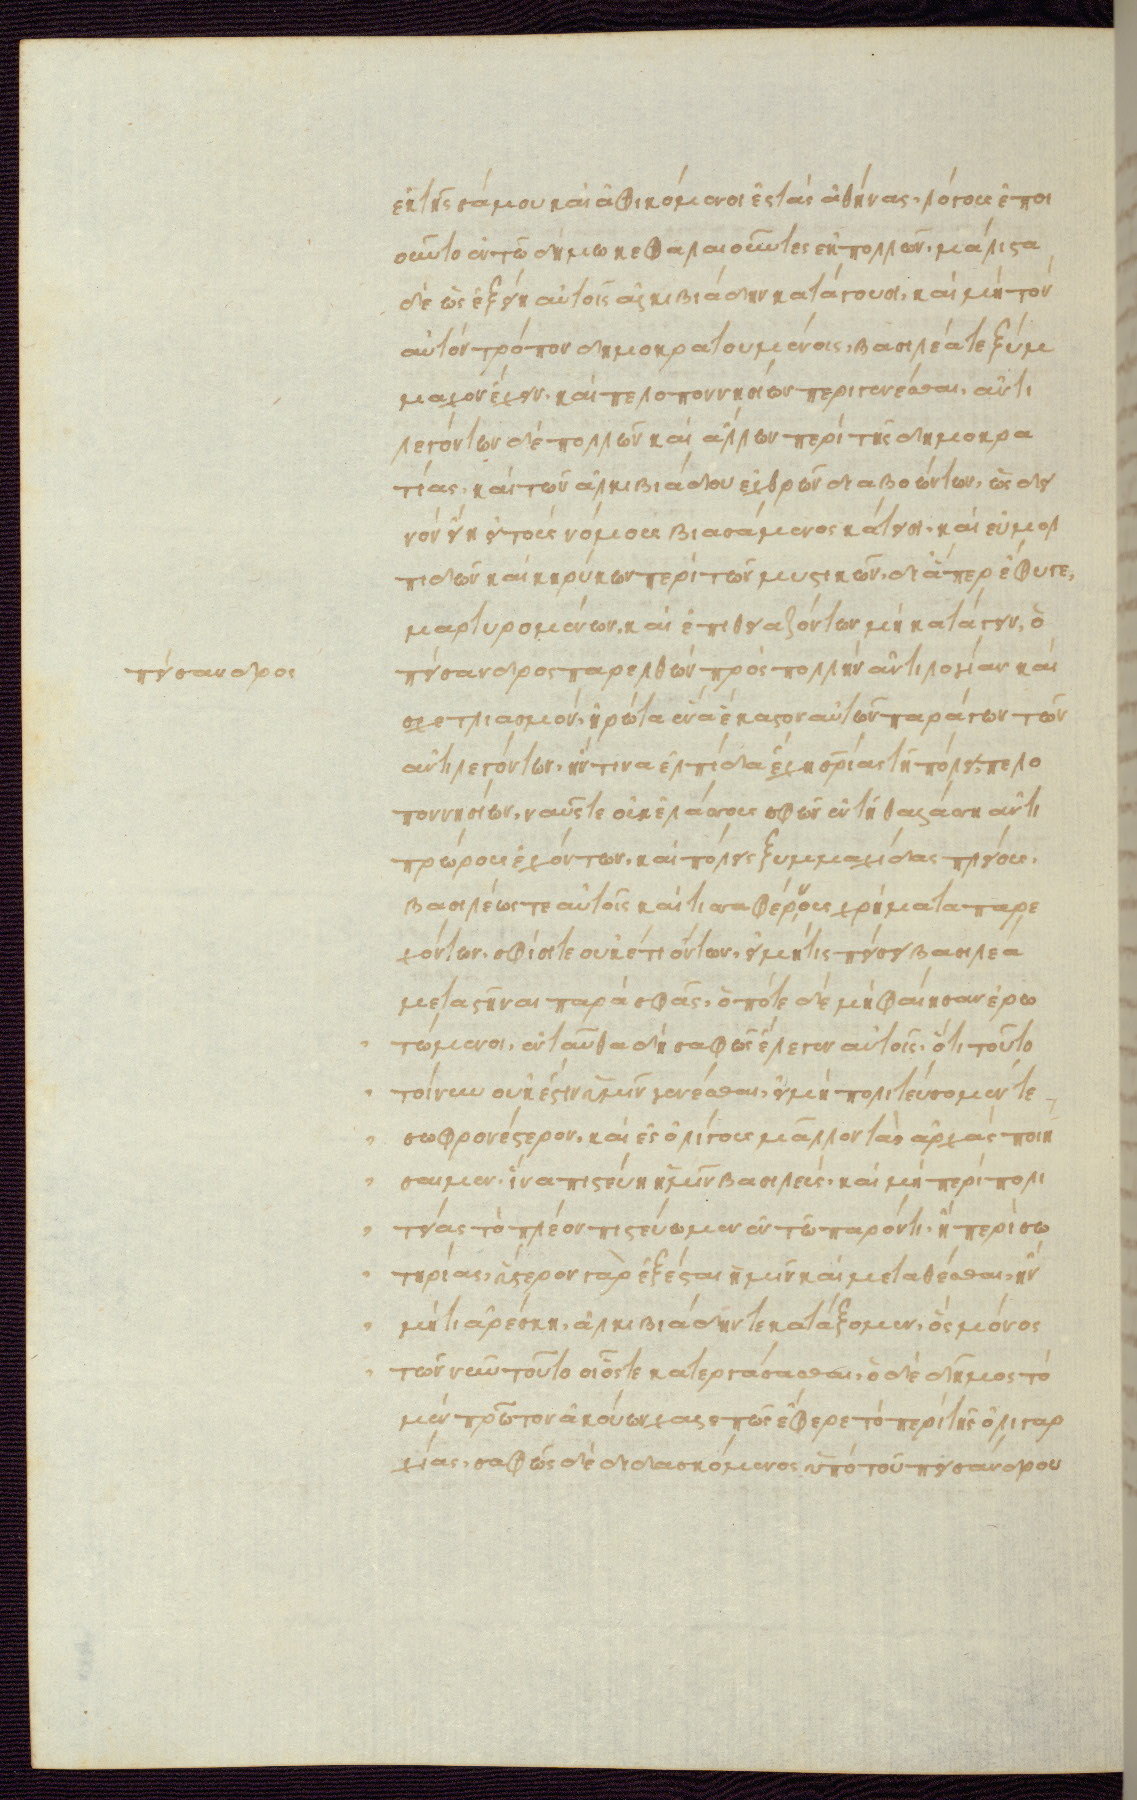 ἐκ τῆς σάμου καὶ ἀφικόμενοι ἐς τὰς ἀθήνας, λόγους ἐποι
οῦντο ἐν τῶ δήμω κεφαλαιοῦντες ἐκ πολλῶν, μάλιστα
δὲ ὡς ἐξείη αὐτοῖς ἀλκιβιάδην κατάγουσι, καὶ μὴ τὸν
αὐτὸν τρόπον δημοκρατουμένοις, βασιλέα τε ξύμ
μαχον ἔχειν, καὶ πελοποννησίων περιγενέσθαι, ἀντι
λεγόντων δὲ πολλῶν καὶ ἄλλων περὶ τῆς δημοκρα
τίας, καὶ τῶν ἀλκιβιάδου ἐχθρῶν διαβοώντων, ὡς δει
νὸν εἴη εἰ τοὺς νόμους βιασάμενος κάτεισι, καὶ εὐμολ
πιδῶν καὶ κηρύκων περὶ τῶν μυστικῶν, δι' ἅπερ ἔφυγε,
μαρτυρομένων, καὶ ἐπιθειαζόντων μὴ κατάγειν, ὁ
πείσανδρος
πείσανδρος παρελθὼν πρὸς πολλὴν ἀντιλογίαν καὶ
σχετλιασμόν, ἠρώτα ἕνα ἕκαστον αὐτῶν παράγων τῶν
ἀντιλεγόντων, ἥντινα ἐλπίδα ἔχη σωτηρίας τῆ πόλει, πελο
ποννησίων, ναῦς τε οὐκ ἐλάσσους σφῶν ἐν τῆ θαλάσση ἀντι
πρώρους ἐχόντων, καὶ πόλεις ξυμμαχίδας πλείους,
βασιλέως τε αὐτοῖς καὶ τισσαφέρνους χρήματα παρε
χόντων, σφίσι τε οὐκέτι ὄντων, εἰ μή τις πείσει βασιλέα
μεταστῆναι παρὰ σφᾶς, ὁπότε δὲ μὴ φαίησαν ἐρω
τώμενοι, ἐνταῦθα δὴ σαφῶς ἔλεγεν αὐτοῖς, ὅτι τοῦτο
τοίνυν οὐκ ἔστιν ἡμῖν γενέσθαι, εἰ μὴ πολιτεύσομέν τε
σωφρονέστερον, καὶ ἐς ὀλίγους μᾶλλον τὰς ἀρχὰς ποιή
σαιμεν, ἵνα πιστεύη ἡμῖν βασιλεύς, καὶ μὴ περὶ πολι
τείας τὸ πλέον πιστεύωμεν ἐν τῶ παρόντι, ἢ περὶ σω
τηρίας, ὕστερον γὰρ ἐξέσται ἡμῖν καὶ μεταθέσθαι, ἢν
μή τι ἀρέσκη, ἀλκιβιάδην τε κατάξομεν, ὃς μόνος
τῶν νῦν τοῦτο οἷός τε κατεργάσασθαι, ὁ δὲ δῆμος τὸ
μὲν πρῶτον ἀκούων χαλεπῶς ἔφερε τὸ περὶ τῆς ὀλιγαρ
χίας, σαφῶς δὲ διδασκόμενος ὑπὸ τοῦ πεισάνδρου